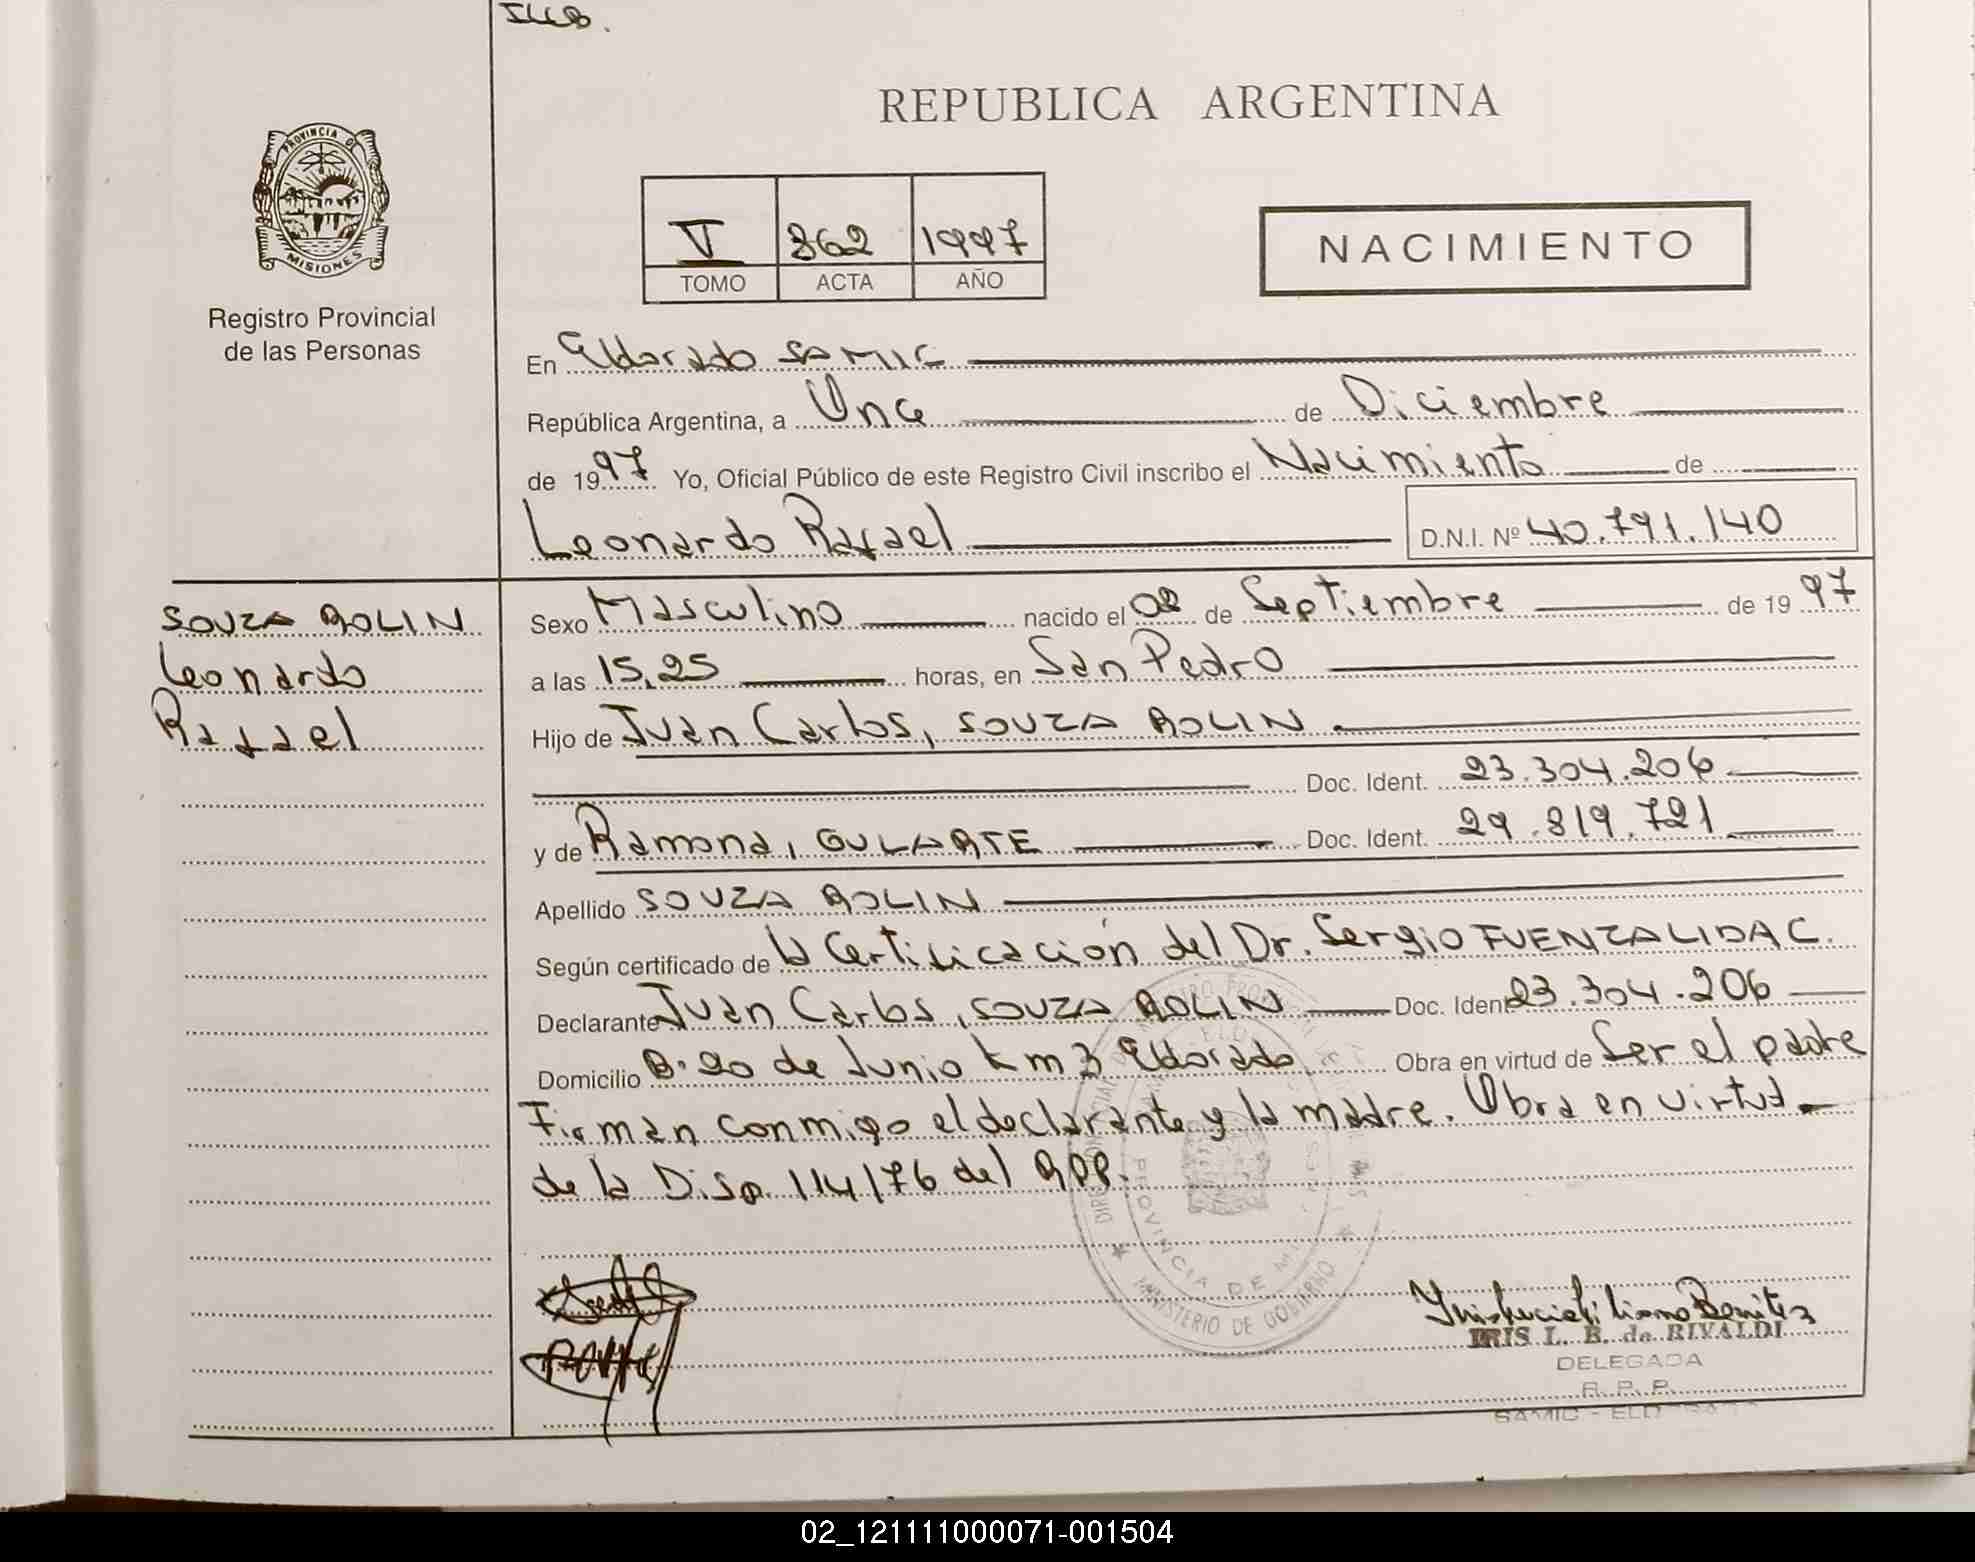 PROVINCIA DE
MISIONES
Registro Provincial
de las Personas
REPUBLICA ARGENTINA
V 362 1997
TOMO ACTA AÑO
NACIMIENTO
En Eldorado SAMIC
República Argentina, a Once de Diciembre
de 1997 Yo, Oficial Público de este Registro Civil inscribo el Nacimiento de
Leonardo Rafael D.N.I. Nº 40.791.140
SOUZA ROLIN
Leonardo
Rafael
Sexo Masculino nacido el 02 de Septiembre de 1997
a las 15,25 horas, en San Pedro
Hijo de Juan Carlos, SOUZA ROLIN
Doc. Ident. 23.304.206
y de Ramona, GULARTE Doc. Ident. 29.819.721
Apellido SOUZA ROLIN
Según certificado de la Certificación del Dr. Sergio FUENZALIDA C.
Declarante Juan Carlos, SOUZA ROLIN Doc. Ident 23.304.206
Domicilio B. 20 de Junio km 3 Eldorado Obra en virtud de Ser el padre
Firman conmigo el declarante y la madre. Obra en virtud
de la Disp. 114/76 del RPP.
MINISTERIO DE GOBIERNO
PROVINCIA DE
IRIS L. B. de RIVALDI
DELEGADA
R. P. P.
SAMIC - ELDORADO
02_121111000071-001504